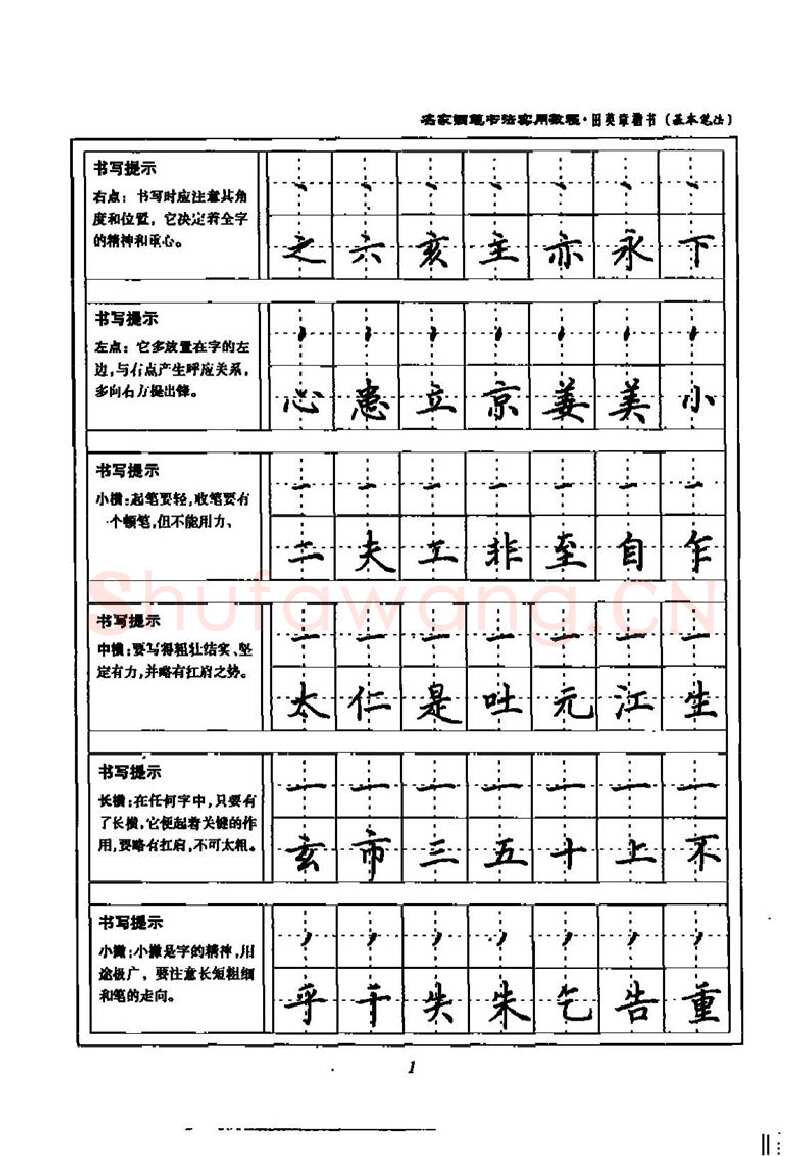 名家钢笔书法实用教程·田英章楷书（基本笔法）
书写提示
右点：书写时应注意其角
度和位置，它决定着全字
的精神和重心。
之六亥主亦永下
书写提示
左点：它多放置在字的左
边，与右点产生呼应关系，
多向右方提出锋。
心患立京姜美小
书写提示
小横：起笔要轻，收笔要有
一个顿笔，但不能用力、
二夫工非至自乍
Shufawang.CN
书写提示
中横：要写得粗壮结实、坚
定有力，并略有扛肩之势。
太仁是吐元江生
书写提示
长横：在任何字中，只要有
了长横，它便起着关键的作
用，要略有扛肩，不可太粗。
玄市三五十上不
书写提示
小撇：小撇是字的精神，用
途极广，要注意长短粗细
和笔的走向。
乎千失朱乞告重
1